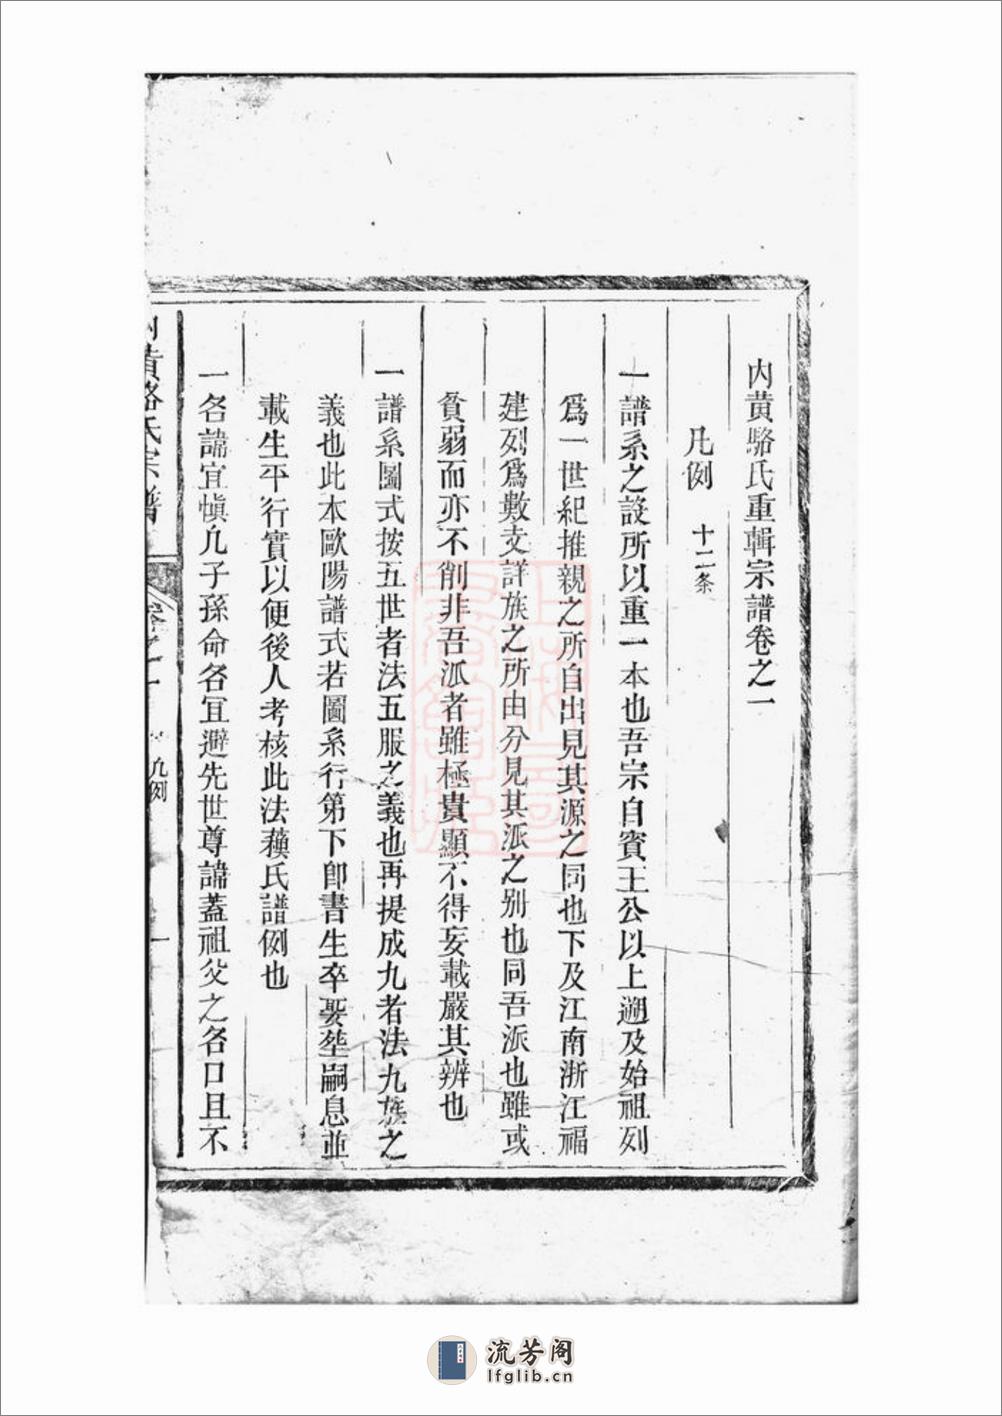 內黃駱氏重輯宗譜卷之一
凡例 十二条
一譜系之設所以重一本也吾宗自賓王公以上遡及始祖列
爲一世紀推親之所自出見其源之同也下及江南浙江福
建列爲數支詳族之所由分見其派之别也同吾派也雖或
貧弱而亦不削非吾派者雖極貴顯不得妄載嚴其辨也
一譜系圖式按五世者法五服之義也再提成九者法九族之
義也此本歐陽譜式若圖系行第下卽書生卒娶塟嗣息並
載生平行實以便後人考核此法蘓氏譜例也
一名諱宜愼凡子孫命名宜避先世尊諱蓋祖父之名口且不
內黃駱氏宗譜 卷之一 凡例 一
流芳阁
lfglib.cn